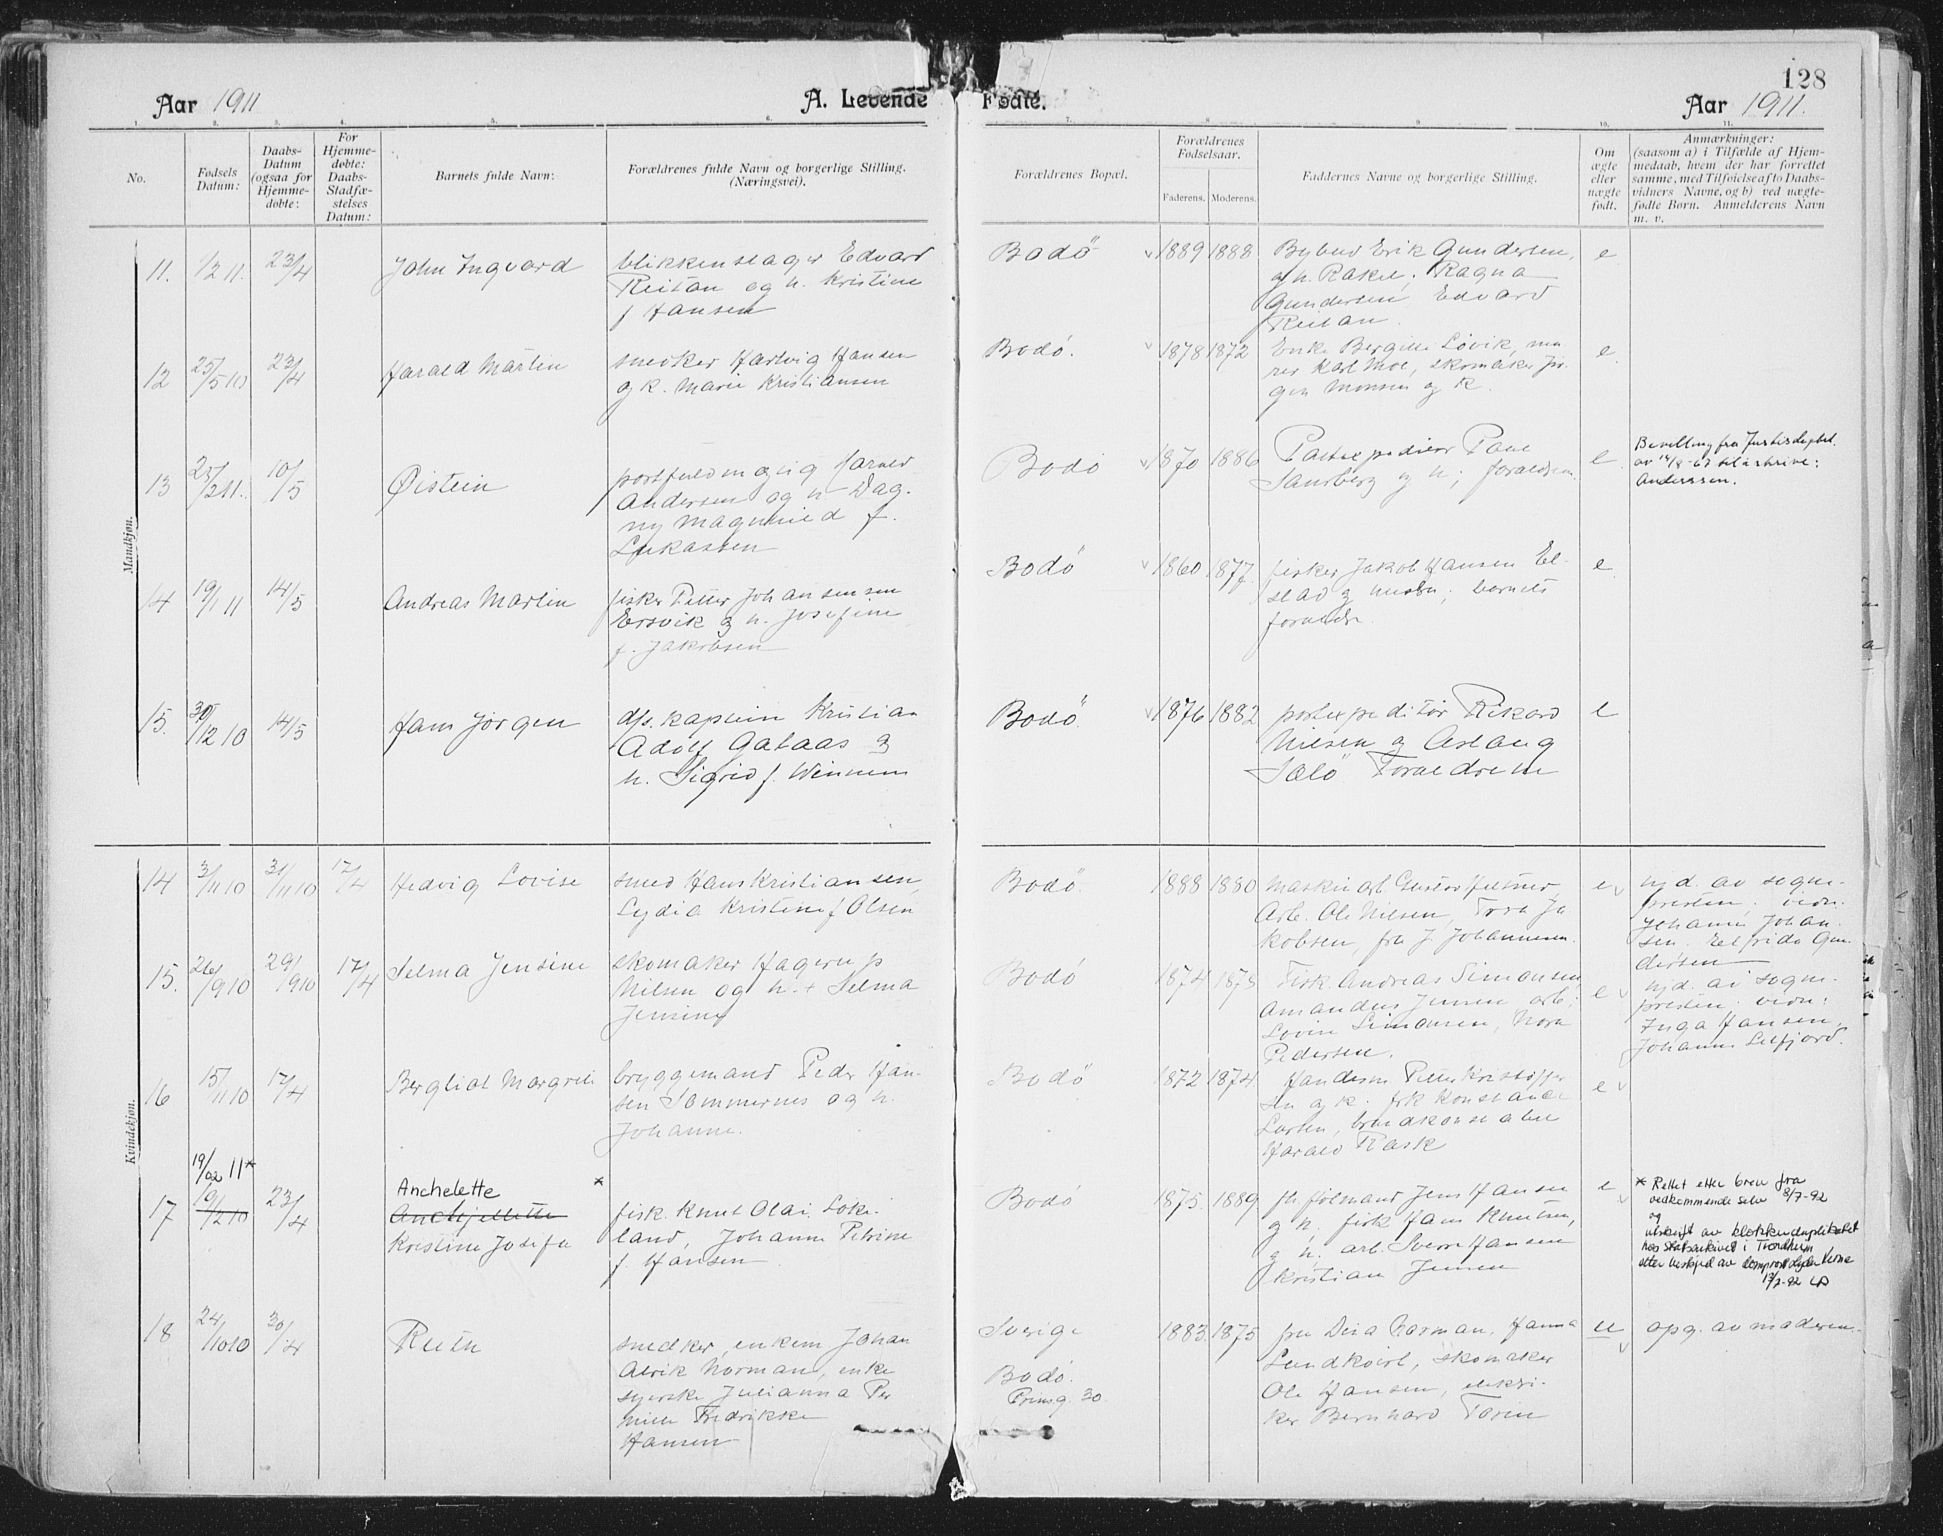 128
Aar 1911
A. Levende Fødte.
Aar 1911.
1. 2. 3. 4. 5. 6. 7. 8. 9. 10. 11.
No.
Fødsels
Datum:
Daabs-
Datum
(ogsaa for
Hjemme-
døbte:
For
Hjemme-
døbte:
Daabs-
Stadfæ-
stelses
Datum:
Barnets fulde Navn:
Forældrenes fulde Navn og borgerlige Stilling.
(Næringsvei).
Forældrenes Bopæl.
Forældrenes
Fødselsaar.
Faderens. Moderens.
Faddernes Navne og borgerlige Stilling.
Om
ægte
eller
uægte
født.
Anmærkninger:
(saasom a) i Tilfælde af Hjem-
medaab, hvem der har forrettet
samme, med Tilføielse af to Daabs-
vidners Navne, og b) ved uægte-
fødte Børn. Anmelderens Navn
m. v.
Mandkjøn.
11. 1/2 11. 23/4 John Ingvard
blikkenslager Edvard
Reitan og h. Kristine
f Hansen
Bodö 1889 1888
Bybud Erik Gundersen,
og h. Rakel, Ragna
Gundersen Edvard
Reitan.
e
12 25/5 10 23/4 Harald Martin
snedker Hartvig Hansen
og k. Marie Kristiansen
Bodö. 1878 1872
Enke Bergitte Lövik, mu
rer Karl Moe, skomaker Jör
gen Monsen og k.
e
13 25/2 11. 10/5 Øistein
postfuldmægtig Harald
Andersen og h Dag-
ny Magnhild f.
Lukassen
Bodö 1870 1886
Postexpeditör Paul
Sandberg og h; foreldren
e
Bevilling fra Justisdeptet.
av 14/8-67 til å skrive:
Anderssen.
14 19/1 11 14/5 Andreas Martin
fisker Petter Johansensen
Ersvik og h. Josefine
f. Jakobsen
Bodö 1860 1877.
fisker Jakob Hansen El-
stad og hustru; barnets
foreldre.
e
15. 30/12 10 14/5 Hans Jörgen
d/s. kaptein Kristian
Adolf Gataas og
h. Sigrid f. Winnem
Bodö 1876 1882
postexpeditör Rikard
Nielsen og Aslaug
Salö Foreldrene
e
Kvindekjøn.
14 3/11 10 31/11 10 17/4 Hedvig Lovise
smed Hans Kristiansen,
Lydia Kristine f Olsen
Bodö. 1888 1880
Maskinarb Gustav Hilmer,
Arb. Ole Nilsen, Tora Ja
kobsen, fru J. Johannesen.
e
hjd. av sogne-
presten; vidn:
Johanne Johan-
sen. Elfrida Gun
dersen
15. 26/9 10 29/9 10 17/4 Selma Jensine
skomaker Hagerup
Nilsen og h. + Selma
Jensine
Bodö 1874 1875
Fisk. Andreas Simonsen
Amandus Jensen arb;
Lovise Simonsen, Nora
Pedersen.
e
hjd. av sogne-
presten. vidn:
Inga Hansen,
Johanne Leifjord.
16 15/11 10 17/4 Bergliot Margrete
bryggemand Peder Han-
sen Sommernes og h.
Johanne.
Bodö 1872 1874
Handelsm Petter Kristoffer
sen og k. frk Konstance
Larsen, brandkonstabel
Harald Rask
e
19/02 11 *
17 19/12 10 23/4
Anchelette *
Anchjellette
Kristine Josefa
fisk. Knut Olai Löke-
land, Johanne Petrine
f. Hansen
Bodö 1875. 1889
Jens Hansen
og h. fisk Hans Knutsen,
og h. arb. Sverre Hansen
Kristian Jensen
e
* Rettet etter brev fra
vedkommende selv 8/7-92
og
utskrift av klokkerduplikatet
hos Statsarkivet i Trondheim
etter beskjed av domprost
13/7-92
18 24/10 10 30/4 Ruth
snedker, enkem Johan
Alrik Norman, enke
syerske Julianna Per
nille Fredrikke
Hansen
Sverige
Bodö.
Prinsg. 30.
1883. 1875
fru Dina Norman, Hanna
Lundkvist, skomaker
Ole Hansen, elektri-
ker Bernhard Torin
u
opg. av moderen.